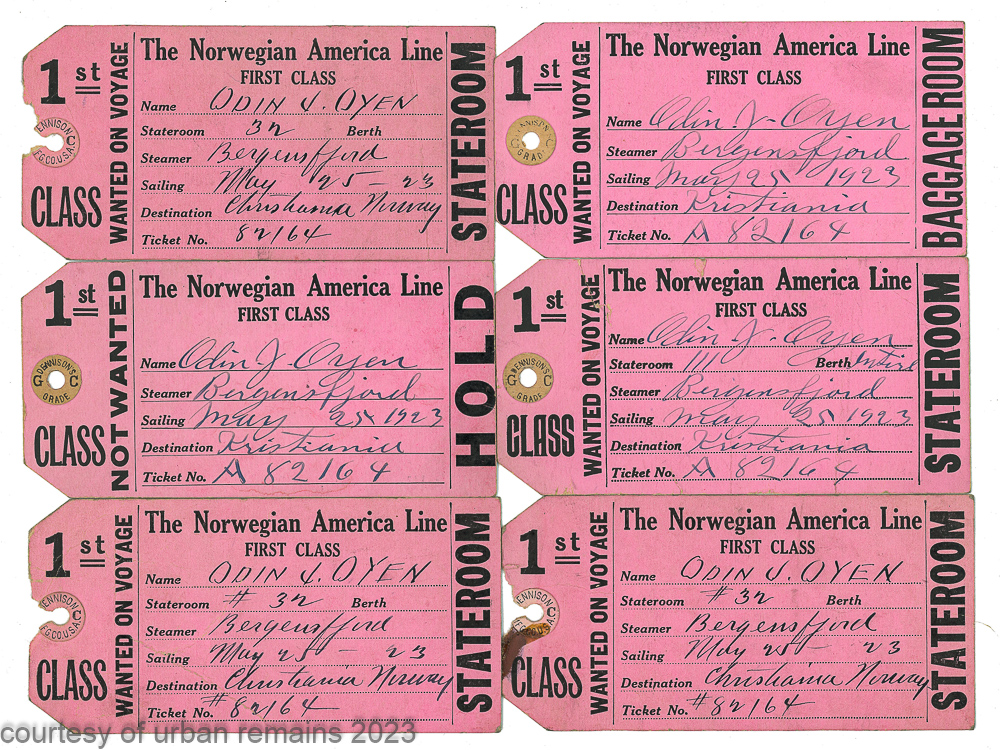 1st
CLASS
DENNISON
F.G.CO.U.S.A.
WANTED ON VOYAGE
The Norwegian America Line
FIRST CLASS
Name ODIN J. OYEN
Stateroom 32 Berth
Steamer Bergensfjord
Sailing May 25 - 23
Destination Christiania Norway
Ticket No. 82164
STATEROOM
1st
CLASS
GRADE
WANTED ON VOYAGE
The Norwegian America Line
FIRST CLASS
Name Odin J. Oyen
Steamer Bergensfjord
Sailing May 25 1923
Destination Kristiania
Ticket No. A 82164
BAGGAGE ROOM
1st
CLASS
DENNISON'S
GRADE
NOT WANTED
The Norwegian America Line
FIRST CLASS
Name Odin J. Oyen
Steamer Bergensfjord
Sailing May 25 1923
Destination Kristiania
Ticket No. A 82164
HOLD
1st
CLASS
DENNISON'S
GRADE
WANTED ON VOYAGE
The Norwegian America Line
FIRST CLASS
Name Odin J. Oyen
Stateroom Berth
Steamer Bergensfjord
Sailing May 25 1923
Destination Kristiania
Ticket No. A 82164
STATEROOM
1st
CLASS
WANTED ON VOYAGE
The Norwegian America Line
FIRST CLASS
Name ODIN J. OYEN
Stateroom # 32 Berth
Steamer Bergensfjord
Sailing May 25 - 23
Destination Christiania Norway
Ticket No. #82164
STATEROOM
1st
CLASS
WANTED ON VOYAGE
The Norwegian America Line
FIRST CLASS
Name ODIN J. OYEN
Stateroom #32 Berth
Steamer Bergensfjord
Sailing May 25 - 23
Destination Christiania Norway
Ticket No. #82164
STATEROOM
courtesy of urban remains 2023